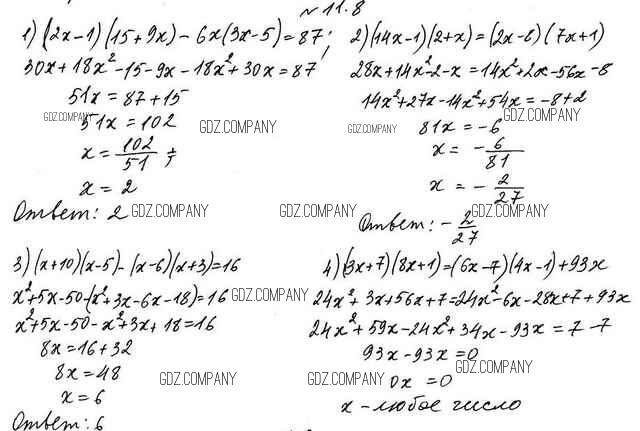 № 11.8
1) (2x-1)(15+9x)-6x(3x-5)=87;
30x+18x²-15-9x-18x²+30x=87
51x=87+15
51x=102
GDZ.COMPANY
GDZ.COMPANY
x=102/51;
x=2
Ответ: 2
GDZ.COMPANY
2) (14x-1)(2+x)=(2x-8)(7x+1)
28x+14x²-2-x=14x²+2x-56x-8
14x²+27x-14x²+54x=-8+2
GDZ.COMPANY
81x=-6
GDZ.COMPANY
x=-6/81
x=-2/27
GDZ.COMPANY
GDZ.COMPANY
Ответ: -2/27
3) (x+10)(x-5)-(x-6)(x+3)=16
x²+5x-50-(x²+3x-6x-18)=16
GDZ.COMPANY
x²+5x-50-x²+3x+18=16
8x=16+32
8x=48
GDZ.COMPANY
x=6
Ответ: 6
4) (3x+7)(8x+1)=(6x-7)(4x-1)+93x
24x²+3x+56x+7=24x²-6x-28x+7+93x
GDZ.COMPANY
24x²+59x-24x²+34x-93x=7-7
93x-93x=0
GDZ.COMPANY
0x=0
GDZ.COMPANY
x-любое число